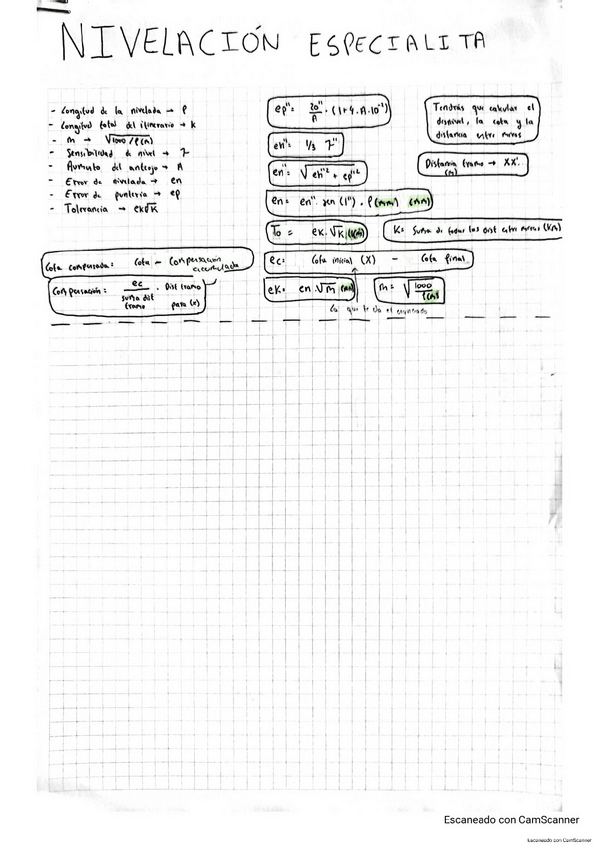 NIVELACIÓN ESPECIALITA
- Longitud de la nivelada → ρ
- Longitud total del itinerario → K
- m → √1000/ρ(m)
- Sensibilidad de nivel → τ
- Aumento del anteojo → A
- Error de nivelada → en
- Error de puntería → ep
- Tolerancia → ek√K
ep" = 20"/A · (1+4·A·10⁻²)
eh" = 1/3 τ"
en" = √eh"² + ep"²
en = en" · sen (1") · ρ (mm) (mm)
To = ek · √K (km)
K = Suma de todas las dist entre miras (Km)
ec = Cota inicial (X) - Cota final
ek = en · √m (mm)
m = √1000/ρ(m)
La que te da el enunciado
Tendrás que calcular el
desnivel, la cota y la
distancia entre miras
Distancia tramo → XX'
(m)
Cota compensada = Cota - Compensación
acumulada
Compensación = ec / suma dist tramo · Dist tramo
para (x)
Escaneado con CamScanner
Escaneado con CamScanner